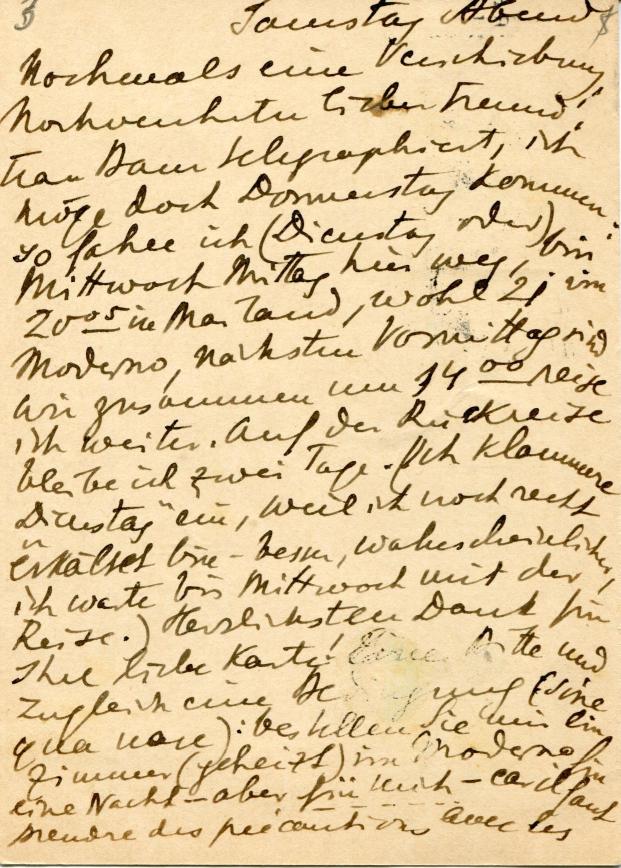 Samstag Abend
Nochmals eine Verschiebung,
hochverehrter lieber Freund!
Frau Baur telegraphiert, ich
möge doch Donnerstag kommen:
so fahre ich (Dienstag oder)
Mittwoch Mittag hier weg, bin
20⁰⁵ in Mailand, wohl 21 im
Moderno, nächsten Vormittag sind
wir zusammen um 14⁰⁰ reise
ich weiter. Auf der Rückreise
bleibe ich zwei Tage. (Ich klammere
"Dienstag" ein, weil ich noch recht
erkältet bin - besser, wahrscheinlicher,
ich warte bis Mittwoch mit der
Reise.) Herzlichsten Dank für
Ihre liebe Karte! Eine Bitte und
zugleich eine Bedingung (sine
qua non): bestellen Sie mir ein
Zimmer (geheizt) im Moderno für
eine Nacht - aber für mich - car il faut
prendre des précautions avec les